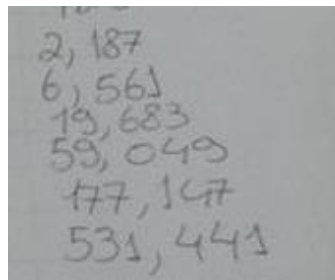 2, 187
6, 561
19, 683
59, 049
177, 147
531, 441